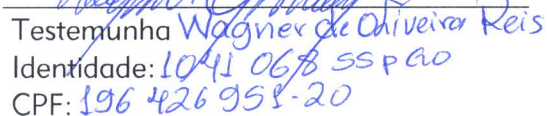 Testemunha Wagner de Oliveira Reis
Identidade: 1041 068 SSP GO
CPF: 196 426 951-20